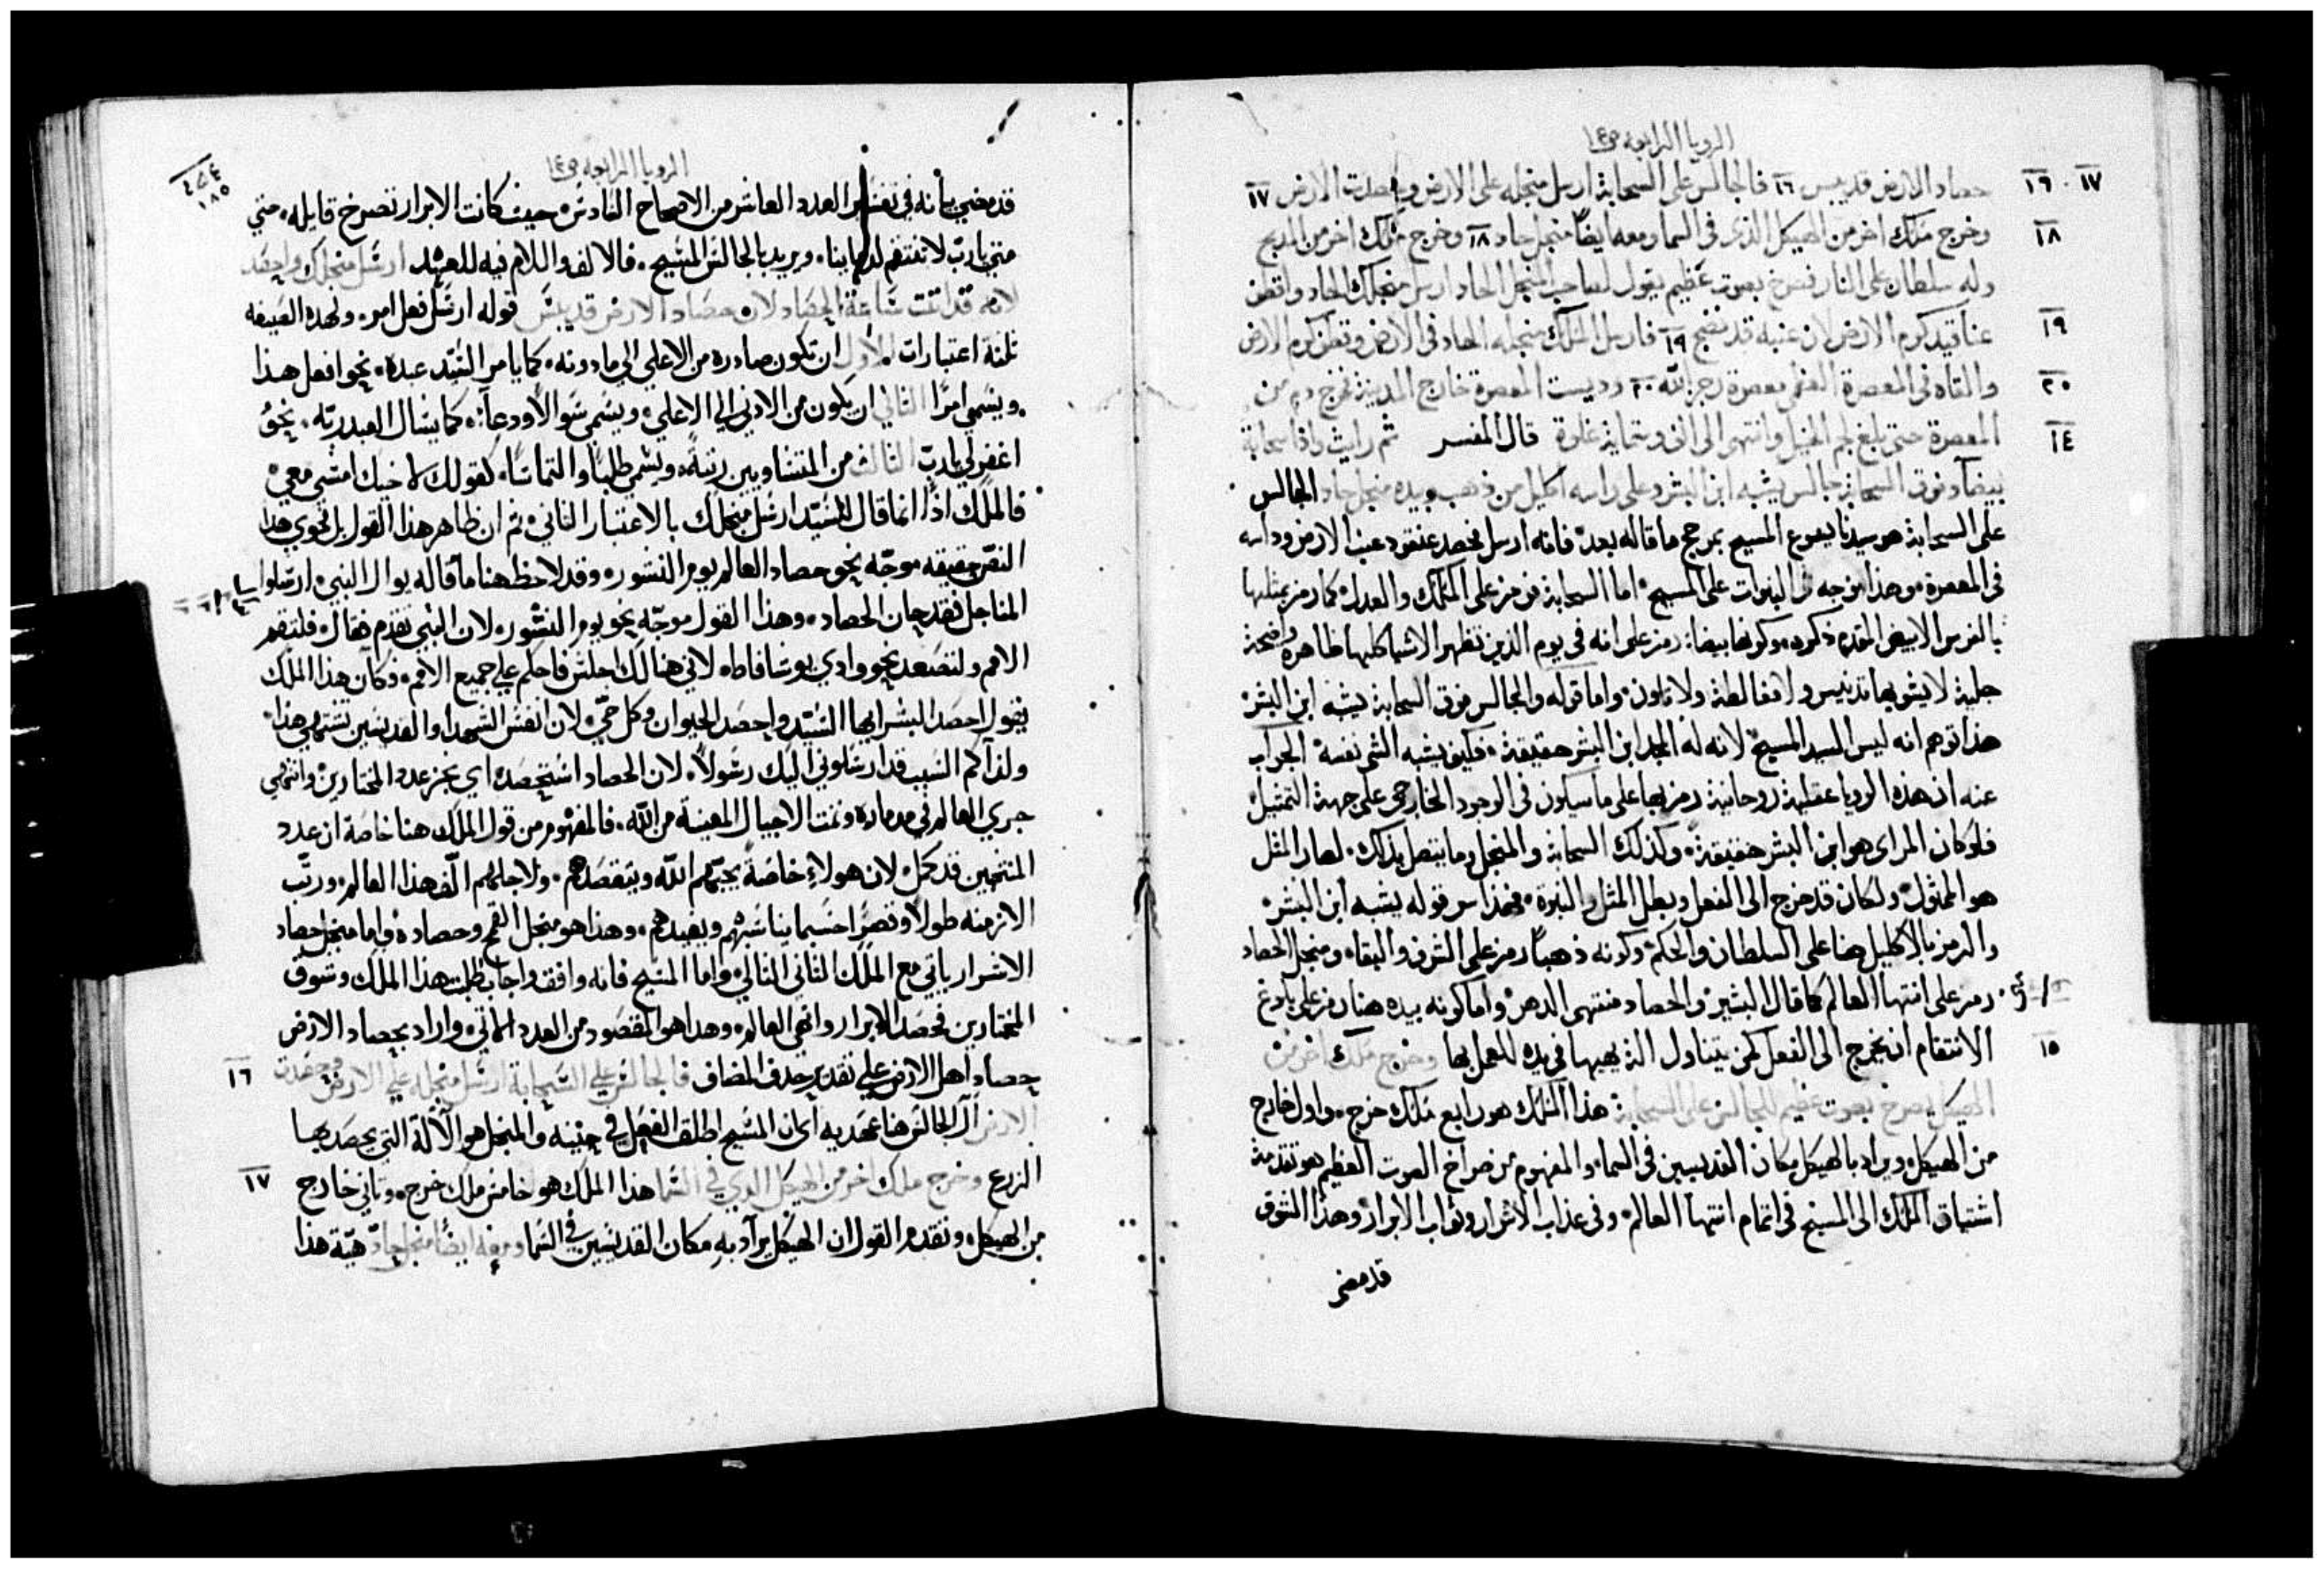 الرويا الرابعه ص١٤
١٦ ١٧ حصاد الارض قد يبس ١٦ فالجالس على السحابة ارسل منجله على الارض وحصدت الارض ١٧
١٨ وخرج ملاك اخر من الهيكل الذى فى السما ومعه ايضًا منجل حاد ١٨ وخرج ملاك اخر من المذبح
وله سلطان على النار فصرخ بصوت عظيم يقول لصاحب المنجل الحاد ارسل منجلك الحاد واقطف
١٩ عناقيد كرم الارض لان عنبه قد نضج ١٩ فارسل الملاك منجله الحاد فى الارض وقطف كرم الارض
٢٠ والقاه فى المعصرة العظمى معصرة رجز الله ٢٠ وديست المعصرة خارج المدينة فخرج دم من
١٤ المعصرة حتى بلغ لجم الخيل وانتهى الى الف وستماية غلوة قال المفسر ثم رايت واذا سحابة
بيضآ وفوق السحابة جالس يشبه ابن البشر وعلى راسه اكليل من ذهب وبيده منجل حاد الجالس
على السحابة هو سيدنا يسوع المسيح بمرجح ما قاله بعد فانه ارسل فحصد عنقود عنب الارض وداسه
فى المعصرة وهذا موجه فى النبوات على المسيح اما السحابة فرمز على الملك والعدل كما رمز بمثلها
بالفرس الابيض المقدم ذكره وكونها بيضا رمز على انه فى يوم الدين تظهر الاشيا كلها ظاهرة واضحة
جلية لا يشوبها تدنيس ولا مغالطة ولا تلون واما قوله والجالس فوق السحابة يشبه ابن البشر
هذا توهم انه ليس السيد المسيح لانه له المجد ابن البشر حقيقة فكيف يشبه الشى نفسه الجواب
عنه ان هذه الرويا عقلية روحانية رمز بها على ما سيكون فى الوجود الخارجى على جهة التمثيل
فلو كان المراى هو ابن البشر حقيقة وكذلك السحابة والمنجل وما يتصل بذلك لصار المثل
هو الممثول ولكان قد خرج الى الفعل وبطل المثل والنبوة فهذا سر قوله يشبه ابن البشر
والرمز بالاكليل هنا على السلطان والحكم وكونه ذهبًا رمز على الشرف والبقاء ومنجل الحصاد
رمز على انتهآ العالم كما قال البشير والحصاد منتهى الدهر واما كونه بيده هنا رمز على بلوغ
١٥ الانتقام ان يخرج الى الفعل كمن يتناول الة يهيها فى يده للعمل بها وخرج ملاك اخر من
الهيكل يصرخ بصوت عظيم للجالس على السحابة هذا الملاك هو رابع ملاك خرج واول خارج
من الهيكل ويراد بالهيكل مكان القديسين فى السماء والمفهوم من صراخ الصوت العظيم هو تقدمة
اشتياق الملاك الى المسيح فى اتمام انتهآ العالم وفى عذاب الاشرار وثواب الابرار وهذا الشوق
قد مضى
الرويا الرابعه ص١٤
١٨٥
قد مضي بيانه في تفسير العدد العاشر من الاصحاح السادس حيث كانت الابرار تصرخ قايله حتي
متي يارب لا تنتقم لدماينا ويريد بالجالس المسيح فالالف واللام فيه للعهد ارسل منجلك واحصد
لانه قد اتت ساعة الحصاد لان حصاد الارض قد يبس قوله ارسل فعل امر ولهذه الصيغه
ثلثة اعتبارات الاول ان تكون صادره من الاعلي الي مادونه كما يامر السيد عبده نحو افعل هذا
ويسمي امرًا الثاني ان يكون من الادني الي الاعلي ويسمي سوالاً ودعآ كما يسال العبد ربه نحو
اغفر لي يارب الثالث من المتساويين رتبةً ويسمي طلبًا والتماسًا كقولك لاخيك امشي معي
فالملاك اذًا انما قال للسيد ارسل منجلك بالاعتبار الثاني ثم ان ظاهر هذا القول بل فحوي هذا
النص حقيقه موجه نحو حصاد العالم يوم النشور وقد لاحظ هنا ما قاله يوال النبي ارسلوا
المناجل فقد حان الحصاد وهذا القول موجه نحو يوم النشور لان النبي تقدم فقال فلتقم
الامم ولتصعد نحو وادي يوشافاط لاني هنالك اجلس فاحكم علي جميع الامم فكان هذا الملك
يقول احصد البشر ايها السيد واحصد الحيوان وكل حي لان انفس الشهدا والقديسين تشتهي هذا
ولذاكم السبب قد ارسلوني اليك رسولاً لان الحصاد استحصد اي نجز عدد المختارين وانتهي
جري العالم في مدماره وتمت الاجيال المعينة من الله فالمفهوم من قول الملاك هنا خاصة ان عدد
المنتخبين قد كمل لان هولاء خاصةً يحبهم الله ويتقصدهم ولاجلهم الّف هذا العالم ورتّب
الازمنه طولاً وقصرًا حسبما يناسبهم ويفيدهم وهذا هو منجل القمح وحصاده واما منجل حصاد
الاشرار ياتي مع الملاك الثاني التالي واما المسيح فانه وافق واجاب طلبة هذا الملاك وشوق
المختارين فحصد الابرار وانهي العالم وهذا هو المقصود من العدد الاتي واراد بحصاد الارض
١٦ حصاد اهل الارض علي تقدير حذف المضاف فالجالس علي السحابة ارسل منجله علي الارض وحصدت
الارض ال الجالس هنا عهديه اي ان المسيح اطلق الفعل في حينه والمنجل هو الآلة التي يحصد بها
١٧ الزرع وخرج ملاك اخر من الهيكل الدي في السما هذا الملاك هو خامس ملاك خرج وثاني خارج
من الهيكل وتقدم القول ان الهيكل يراد به مكان القديسين في السما ومعه ايضًا منجل حادّ هيّة هذا